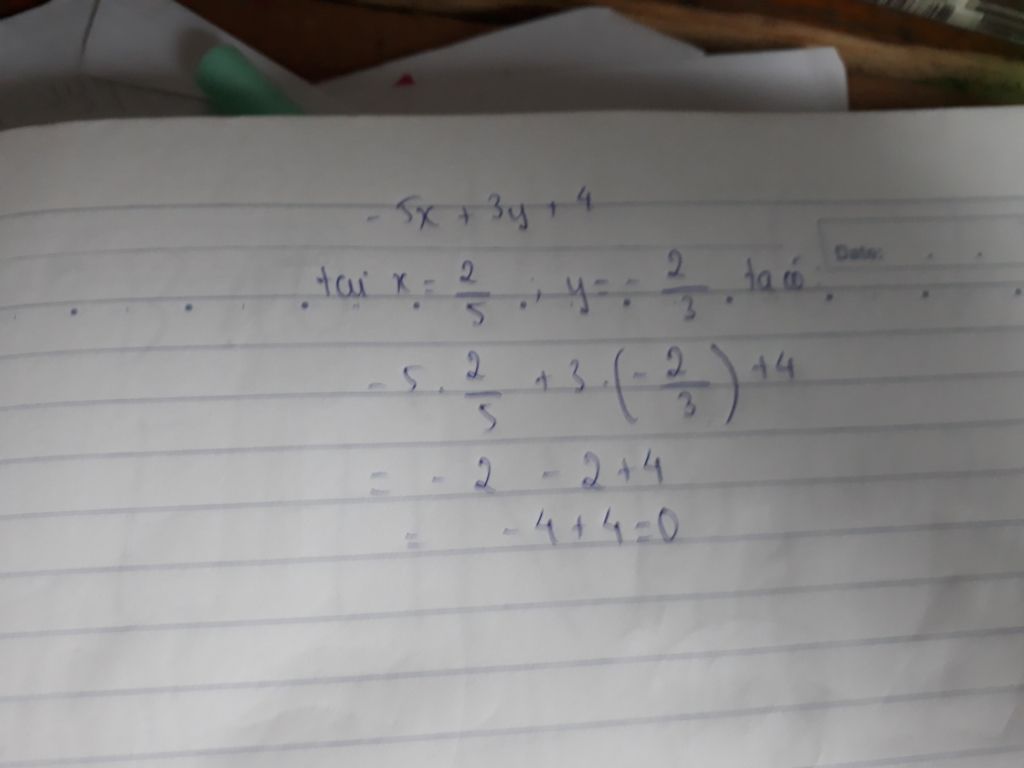 - 5x + 3y + 4
Date:
tại x = 2/5 ; y = - 2/3 . ta có
- 5 . 2/5 + 3 . (- 2/3) + 4
= - 2 - 2 + 4
= - 4 + 4 = 0